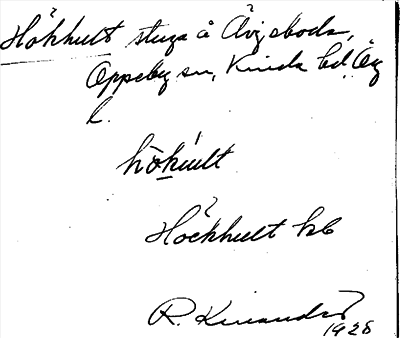 Hökhult stuga å Ävjeboda,
Oppeby sn, Kinda hd, Ög
l.
hö̀kult
Höckhult kb
R. Kinander
1928